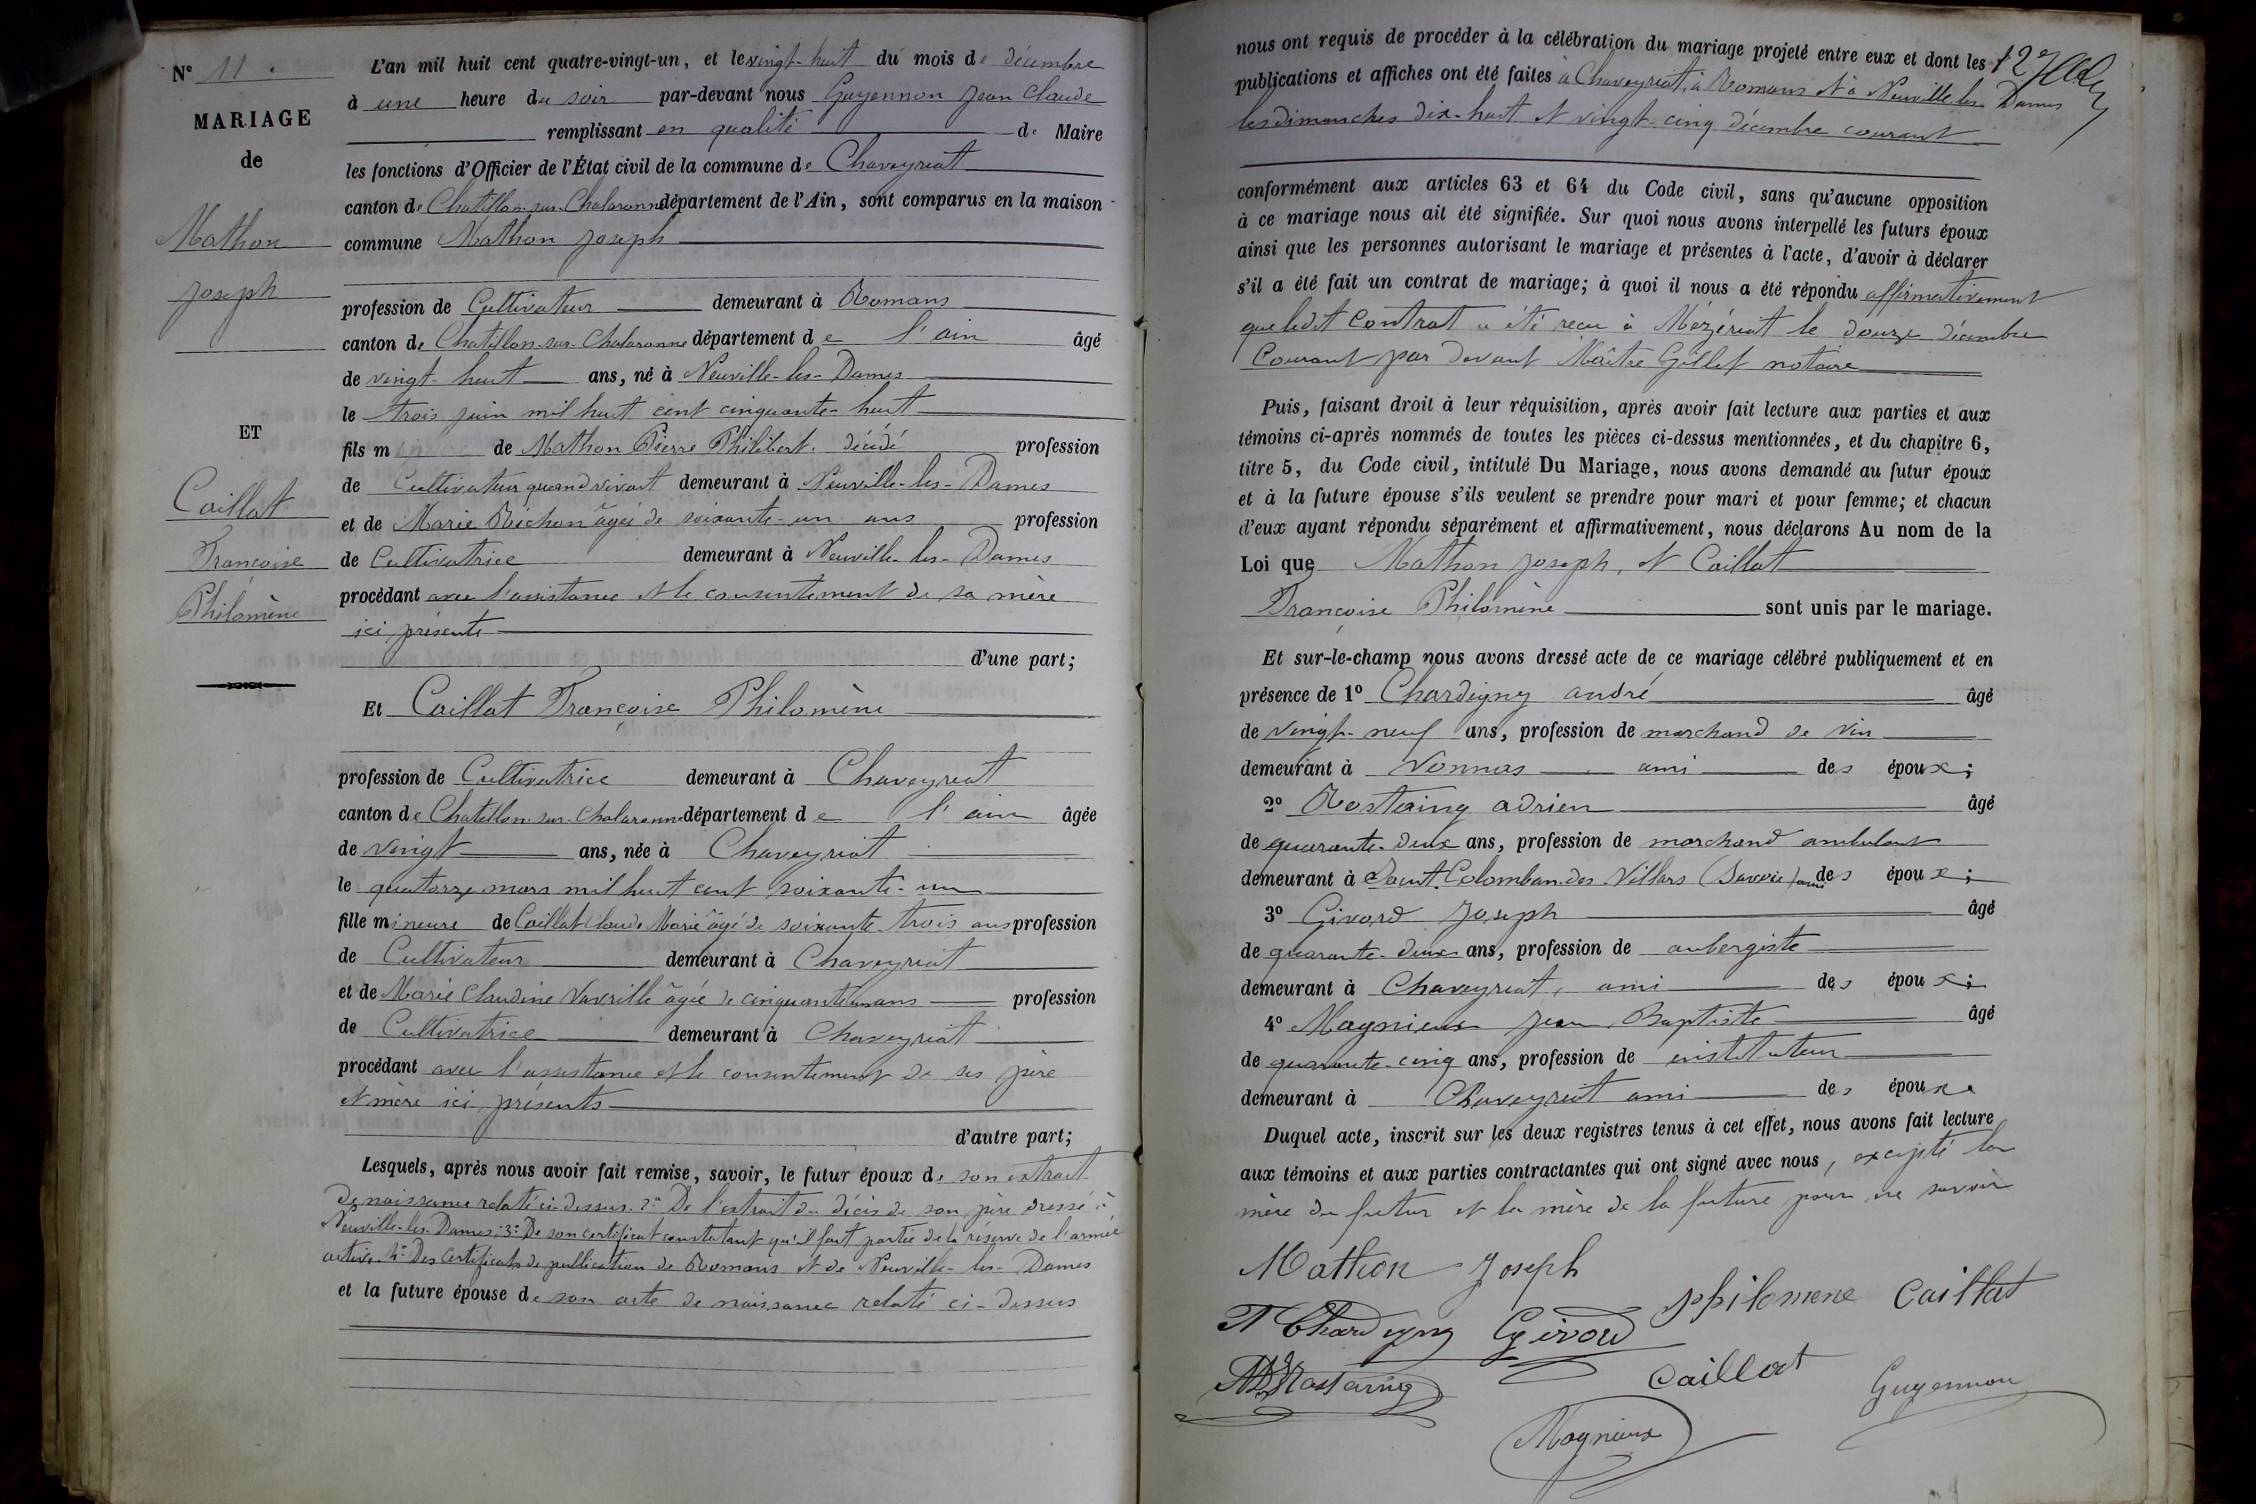 N° 11.
MARIAGE
de
Mathon
Joseph
ET
Caillat
Françoise
Philomène
L'an mil huit cent quatre-vingt-un, et le vingt-huit du mois de décembre
à une heure du soir par-devant nous Guyennon Jean Claude
remplissant en qualité de Maire
les fonctions d'Officier de l'État civil de la commune de Chaveyriat
canton de Chatillon-sur-Chalaronne département de l'Ain, sont comparus en la maison
commune Mathon Joseph
profession de Cultivateur demeurant à Romans
canton de Chatillon-sur-Chalaronne département de l'ain âgé
de vingt-huit ans, né à Neuville-les-Dames
le trois juin mil huit cent cinquante-huit
fils m de Mathon Pierre Philibert. décédé profession
de Cultivateur quand vivait demeurant à Neuville-les-Dames
et de Marie Richon âgée de soixante-un ans profession
de Cultivatrice demeurant à Neuville-les-Dames
procédant avec l'assistance et le consentement de sa mère
ici présente
d'une part;
Et Caillat Françoise Philomène
profession de Cultivatrice demeurant à Chaveyriat
canton de Chatillon-sur-Chalaronne département de l'ain âgée
de vingt ans, née à Chaveyriat
le quatorze mars mil huit cent soixante-un
fille mineure de Caillat Claude Marie âgé de soixante-trois ans profession
de Cultivateur demeurant à Chaveyriat
et de Marie Claudine âgée de cinquante ans profession
de Cultivatrice demeurant à Chaveyriat
procédant avec l'assistance et le consentement de ses père
et mère ici présents
d'autre part;
Lesquels, après nous avoir fait remise, savoir, le futur époux de son extrait
de naissance relaté ci-dessus. 2° De l'extrait du décès de son père dressé à
Neuville-les-Dames; 3° De son certificat constatant qu'il fait partie de la réserve de l'armée
active. 4° Des Certificats de publication de Romans et de Neuville-les-Dames
et la future épouse de son acte de naissance relaté ci-dessus
nous ont requis de procéder à la célébration du mariage projeté entre eux et dont les 12e
publications et affiches ont été faites à Chaveyriat, à Romans et à Neuville-les-Dames
les dimanches dix-huit et vingt-cinq décembre courant
conformément aux articles 63 et 64 du Code civil, sans qu'aucune opposition
à ce mariage nous ait été signifiée. Sur quoi nous avons interpellé les futurs époux
ainsi que les personnes autorisant le mariage et présentes à l'acte, d'avoir à déclarer
s'il a été fait un contrat de mariage; à quoi il nous a été répondu affirmativement
que ledit Contrat a été reçu à Mézériat le douze décembre
Courant par devant Maître Gillet notaire
Puis, faisant droit à leur réquisition, après avoir fait lecture aux parties et aux
témoins ci-après nommés de toutes les pièces ci-dessus mentionnées, et du chapitre 6,
titre 5, du Code civil, intitulé Du Mariage, nous avons demandé au futur époux
et à la future épouse s'ils veulent se prendre pour mari et pour femme; et chacun
d'eux ayant répondu séparément et affirmativement, nous déclarons Au nom de la
Loi que Mathon Joseph, et Caillat
Françoise Philomène sont unis par le mariage.
Et sur-le-champ nous avons dressé acte de ce mariage célébré publiquement et en
présence de 1° Chardigny andré âgé
de vingt-neuf ans, profession de marchand de vin
demeurant à Vonnas ami des époux;
2° Rostaing adrien âgé
de quarante-deux ans, profession de marchand ambulant
demeurant à Saint-Colomban-des-Villars (Savoie) ami des époux;
3° Girord Joseph âgé
de quarante-deux ans, profession de aubergiste
demeurant à Chaveyriat, ami des époux;
4° Magnieux Jean Baptiste âgé
de quarante-cinq ans, profession de instituteur
demeurant à Chaveyriat ami des époux.
Duquel acte, inscrit sur les deux registres tenus à cet effet, nous avons fait lecture
aux témoins et aux parties contractantes qui ont signé avec nous, excepté la
mère du futur et la mère de la future pour ne savoir
Mathon Joseph
philomene Caillat
Chardigny Girord
Rostaing
Caillat
Guyennon
Magnieux